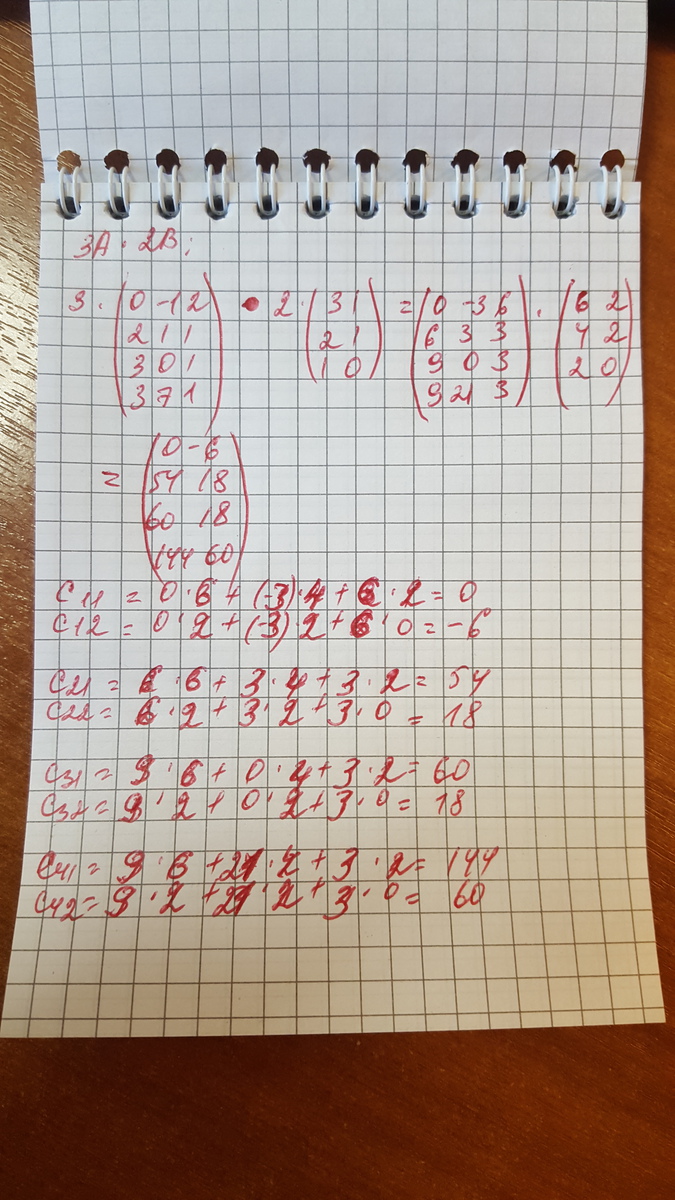 3A · 2B;
3 · (0 -1 2 • 2 · (3 1 = (0 -3 6 · (6 2
2 1 1 2 1 6 3 3 4 2
3 0 1 1 0) 9 0 3 2 0)
3 7 1) 9 21 3)
= (0 -6
54 18
60 18
144 60)
C11 = 0 · 6 + (-3) · 4 + 6 · 2 = 0
C12 = 0 · 2 + (-3) · 2 + 6 · 0 = -6
C21 = 6 · 6 + 3 · 4 + 3 · 2 = 54
C22 = 6 · 2 + 3 · 2 + 3 · 0 = 18
C31 = 9 · 6 + 0 · 4 + 3 · 2 = 60
C32 = 9 · 2 + 0 · 2 + 3 · 0 = 18
C41 = 9 · 6 + 21 · 4 + 3 · 2 = 144
C42 = 9 · 2 + 21 · 2 + 3 · 0 = 60